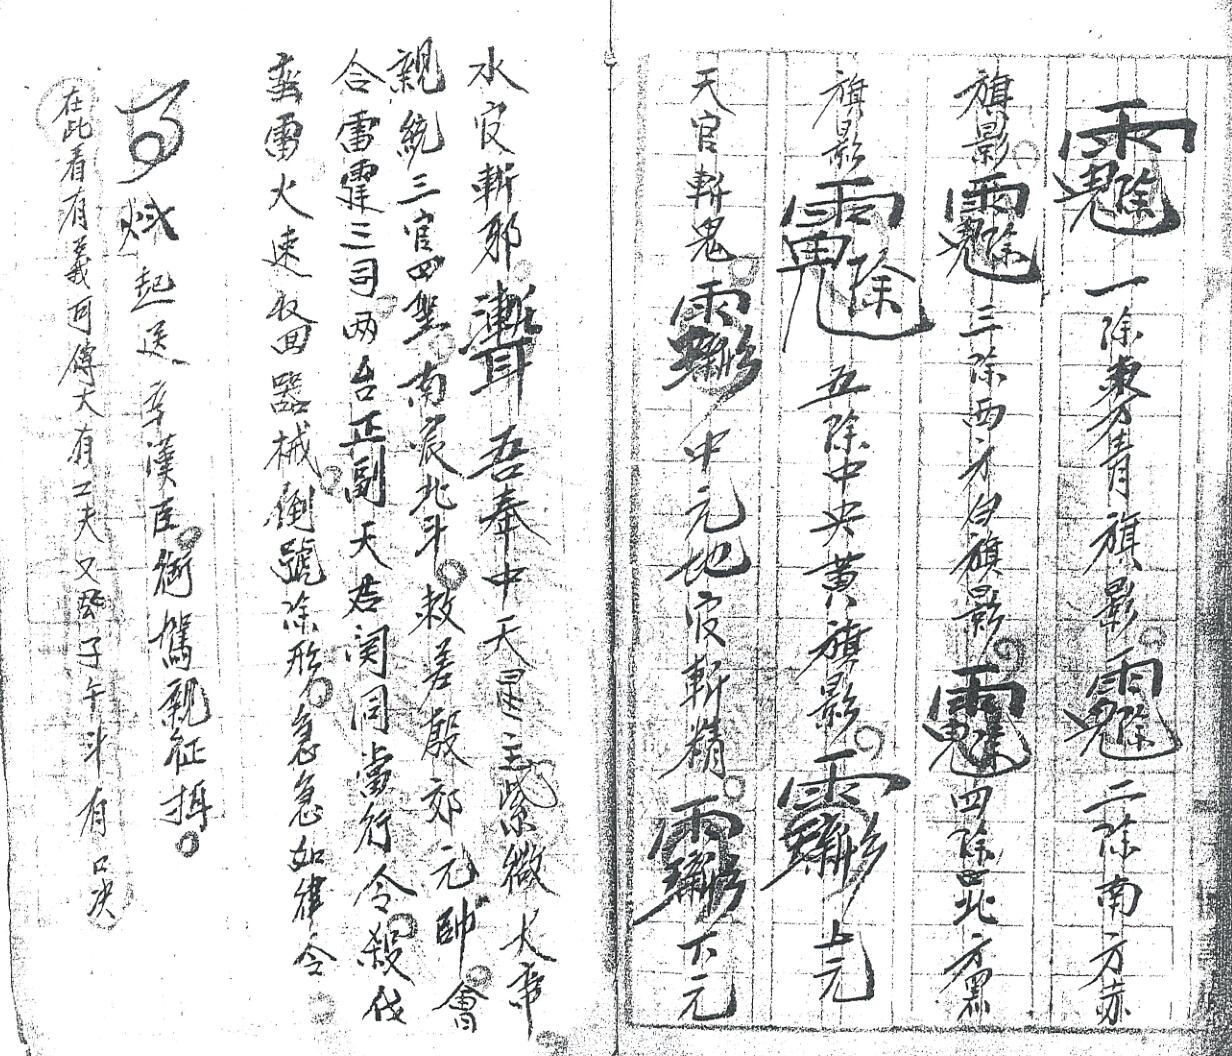 一除東方青旗影 二除南方赤
旗影 三除西方白旗影 四除北方黑
旗影 五除中央黃旗影 上元
天官斬鬼 中元地官斬精 下元
水官斬邪 吾奉中天星主紫微大帝
親統三官四聖南宸北斗敕差殷郊元帥會
合雷霆三司兩台正副天君関同當行令殺伐
雷火速收回器械倒號除形急急如律令
起送辛漢臣 御駕親征
在此看有義可傳大有工夫又 子午斗有口决